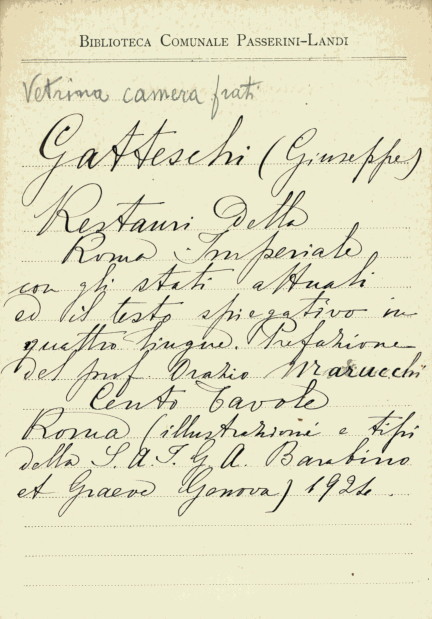 BIBLIOTECA COMUNALE PASSERINI-LANDI
Vetrina camera frati
Gatteschi (Giuseppe)
Restauri della
Roma Imperiale
con gli stati attuali
ed il testo spiegativo in
quattro lingue. Prefazione
del prof. Orazio Marucchi
Cento Tavole
Roma (illustrazioni e tipi
della S. A. I. G. A. Barabino
et Graeve Genova) 1924.